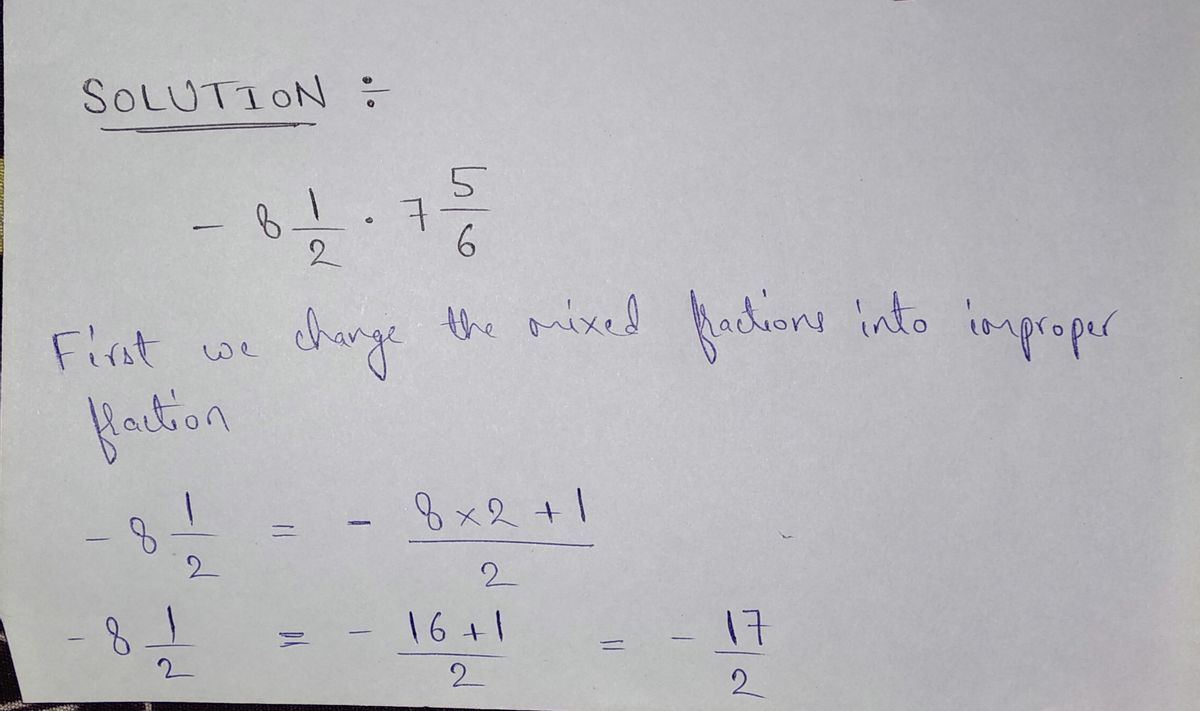 SOLUTION ÷
- 8 1/2 · 7 5/6
First we change the mixed fractions into improper
fraction
- 8 1/2 = - (8×2+1)/2
- 8 1/2 = - (16+1)/2 = - 17/2